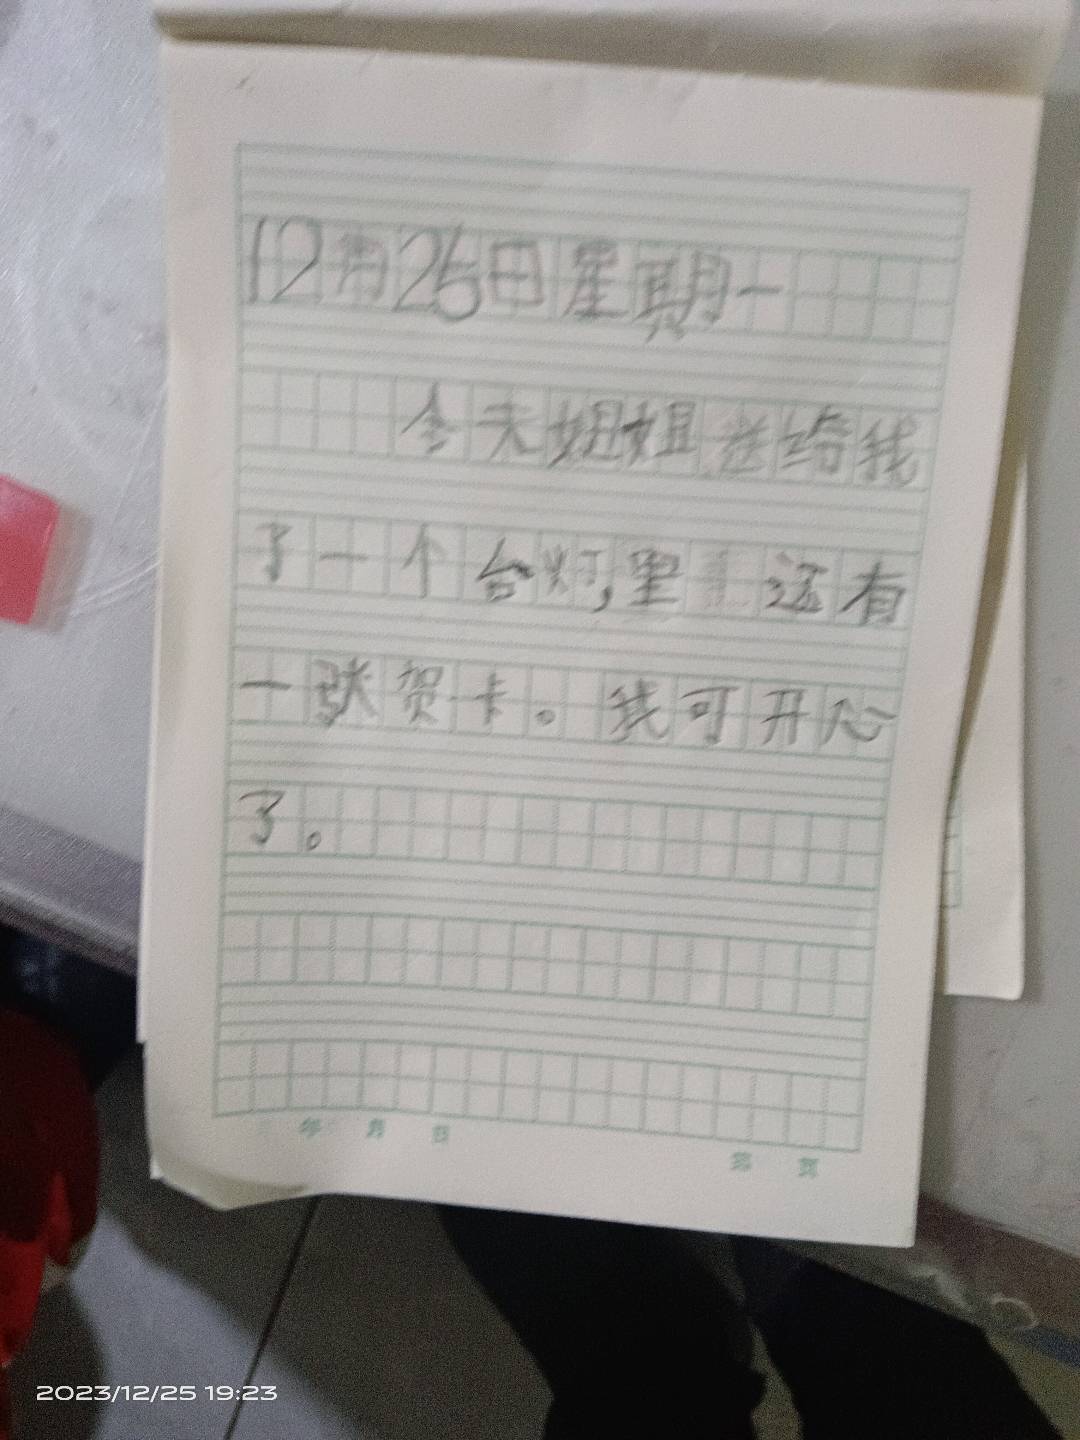 12月25日星期一
今天姐姐送给我
了一个台灯,里还有
一张贺卡。我可开心
了。
年 月 日
第 页
2023/12/25 19:23